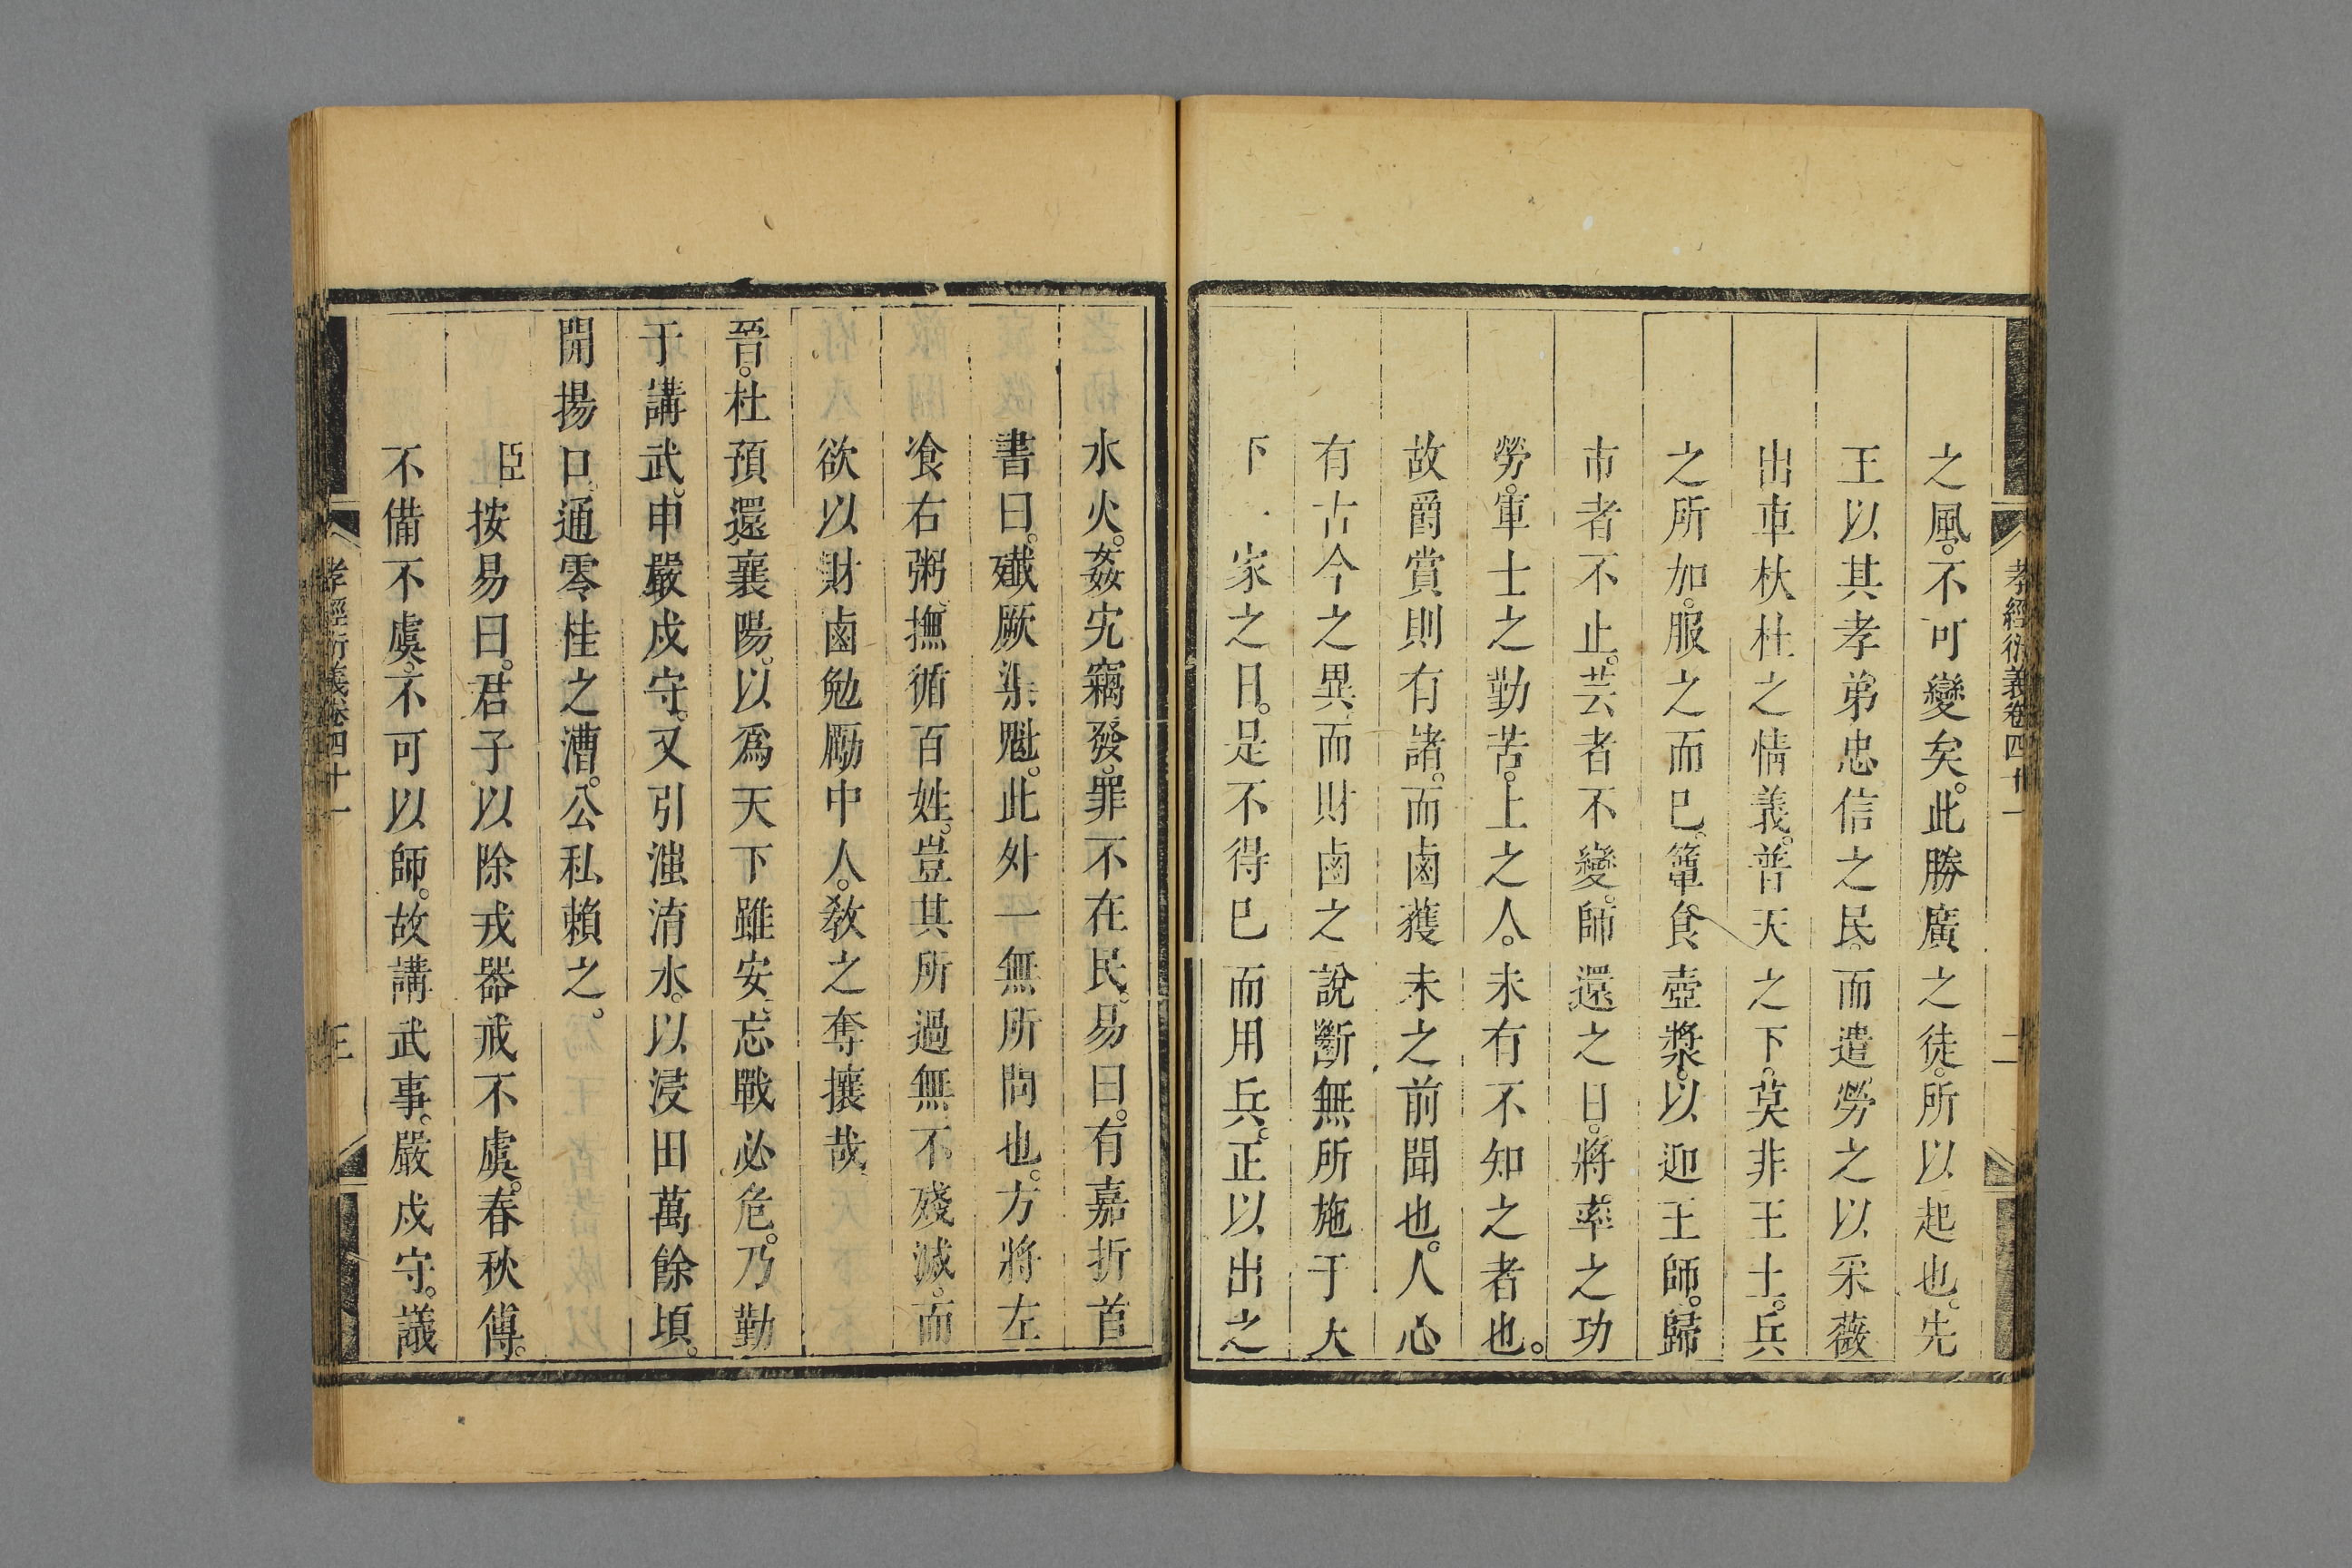 孝經衍義卷四十一 二
之風。不可變矣。此勝廣之徒。所以起也。先
王以其孝弟忠信之民。而遣勞之以采薇
出車杕杜之情義。普天之下。莫非王士。兵
之所加。服之而已。簞食壺漿。以迎王師。歸
市者不止。芸者不變。師還之日。將率之功
勞。軍士之勤苦。上之人。未有不知之者也。
故爵賞則有諸。而鹵獲未之前聞也。人心
有古今之異。而財鹵之說斷無所施于大
下一家之日。是不得已而用兵。正以出之
水火。姦宄竊發。罪不在民。易曰。有嘉折首
書曰。殲厥渠魁。此外一無所問也。方將左
飡右粥。撫循百姓。豈其所過無不殘滅。而
欲以財鹵勉勵中人。敎之奪攘哉
晉。杜預還襄陽。以爲天下雖安。忘戰必危。乃勤
于講武。申嚴戍守。又引滍淯水。以浸田萬餘頃。
開揚口。通零桂之漕。公私賴之。
臣按易曰。君子以除戎器戒不虞。春秋傳。
不備不虞。不可以師。故講武事。嚴戍守。議
孝經衍義卷四十一 三